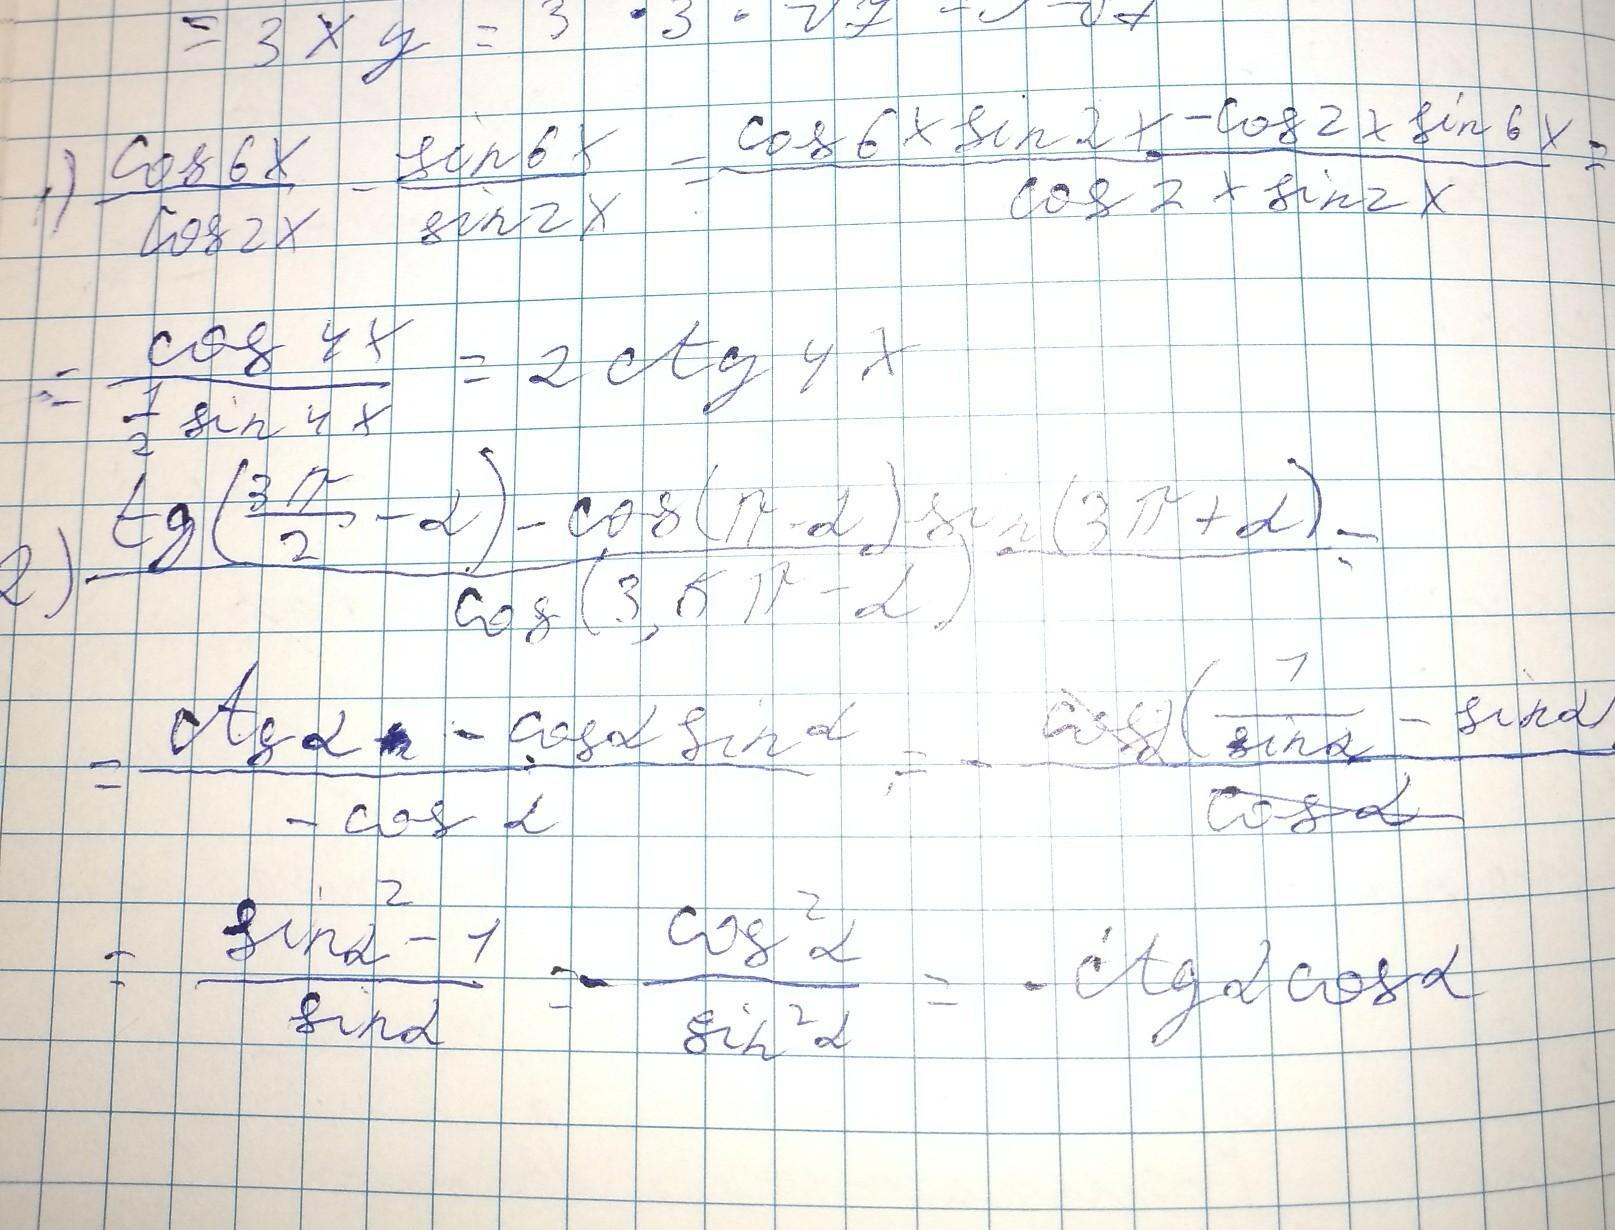 = 3xy = 3 · 3 ·
1) cos6x/cos2x - sin6x/sin2x = (cos6x sin2x - cos2x sin6x)/(cos2x sin2x) =
= cos4x/(1/2 sin4x) = 2ctg4x
2) (tg(3π/2 - α) - cos(π-α) sin(3π+α))/cos(3,5π-α) =
= (ctgα - cosα sinα)/(-cosα) = - cosα(1/sinα - sinα)/cosα
= (sinα² - 1)/sinα = - cos²α/sin²α = - ctgα cosα